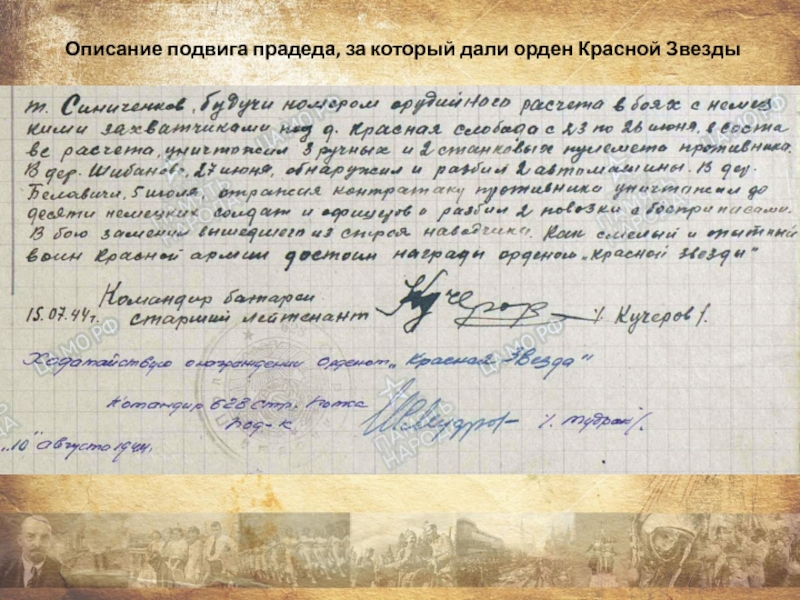 Описание подвига прадеда, за который дали орден Красной Звезды
т. Синиченков, будучи номером орудийного расчета в боях с немец
кими захватчиками под д. Красная слобода с 23 по 26 июня, в соста
ве расчета, уничтожил 3 ручных и 2 станковых пулемета противника.
В дер. Шибаново, 27 июня, обнаружил и разбил 2 автомашины. В дер.
Белавичи, 5 июля, отражая контратаку противника уничтожил до
десяти немецких солдат и офицеров и разбил 2 повозки с боеприпасами.
В бою заменил вышедшего из строя наводчика. Как смелый и опытный
воин Красной армии достоин награды орденом „Красной звезды"
Командир батареи
15.07.44г. старший лейтенант Кучеров /. Кучеров /.
Ходатайствую о награждении Орденом „Красная Звезда"
Командир 628 стр. полка
Под-к /. Мудрак /.
„10" августа 1944г.
ЦАМО.РФ
ПАМЯТЬ НАРОДА